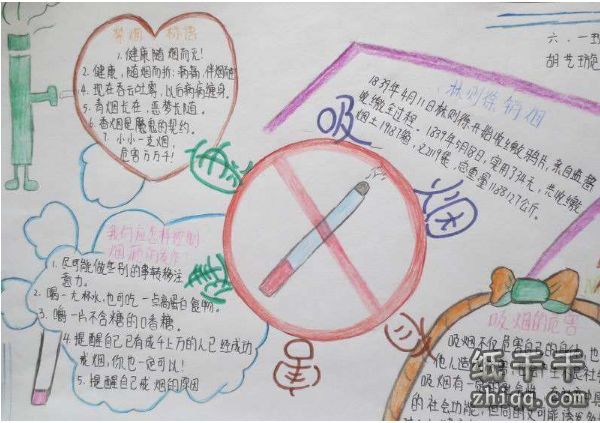 禁烟标语
1.健康随烟而无!
2.健康,随烟而折:病弱,伴烟
4.现在吞云吐雾,以后病病缠身。
5.香烟长在,恶梦长随。
6.香烟是魔鬼的契约。
7.小小一支烟,
危害万万千!
六.一班
胡艺
林则徐销烟
1839年4月11日林则徐开始收缴鸦片,亲自监督
收缴全过程.1839年5月18日,实用34天,共收缴
烟土19187箱,2119袋,总重量1188127公斤。
吸
烟
我们应怎样控制
烟瘾的发作!
1.尽可能做些别的事转移注
意力。
2.喝一大杯水,也可吃一点高蛋白食物。
3.嚼一片不含糖的口香糖。
4.提醒自己已有成千上万的人已经成功
戒烟,你也一定可以!
5.提醒自己戒烟的原因
吸烟的危害
吸烟不仅危害自己的身
他人造
吸烟有一
的社会功能,但同时又可能诱发
纸千千
zhiqq.com